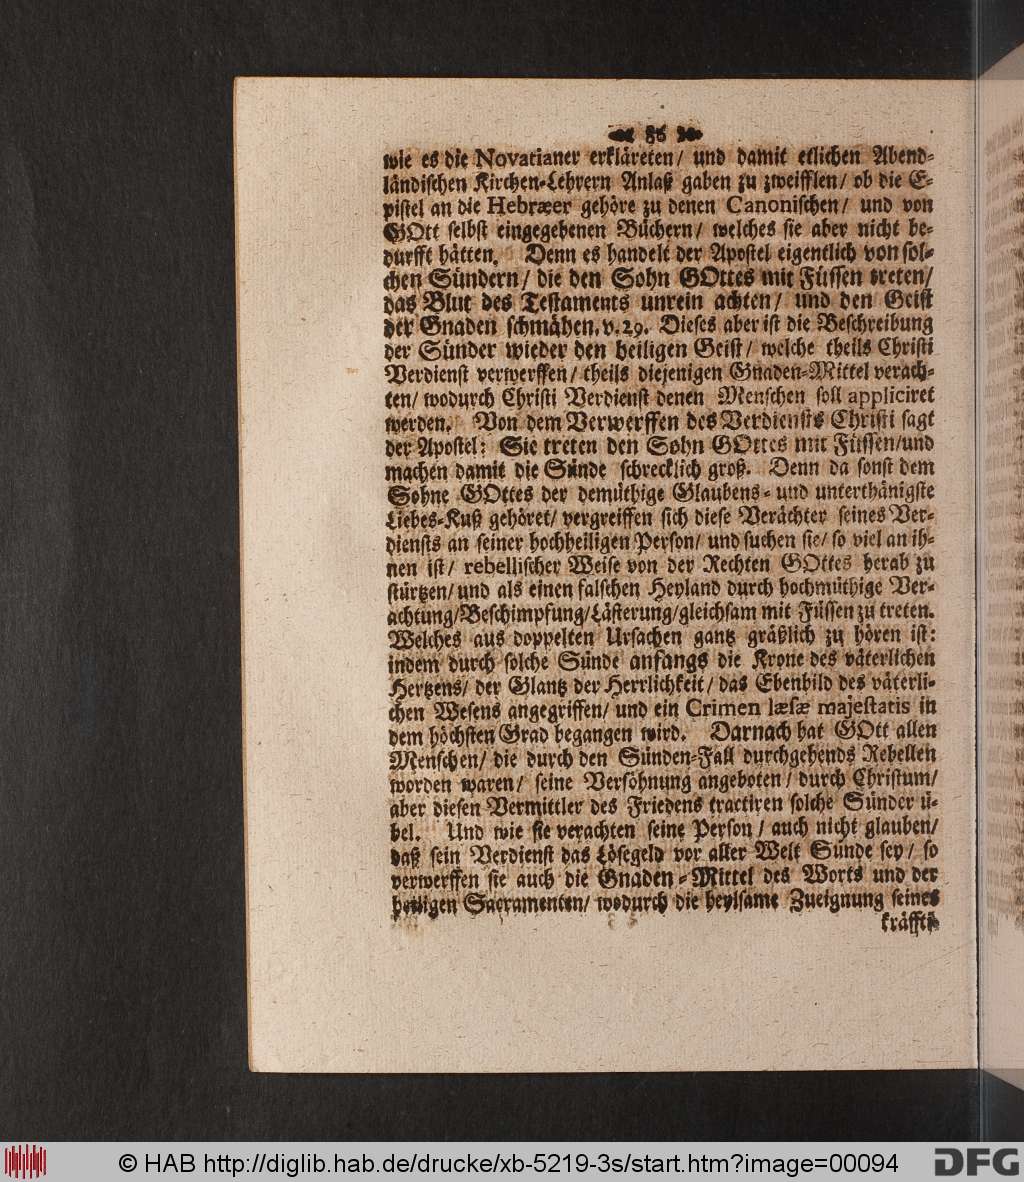 86
wie es die Novatianer erkläreten/ und damit etlichen Abend-
ländischen Kirchen-Lehrern Anlaß gaben zu zweifflen/ ob die E-
pistel an die Hebræer gehöre zu denen Canonischen/ und von
GOtt selbst eingegebenen Büchern/ welches sie aber nicht be-
durfft hätten. Denn es handelt der Apostel eigentlich von sol-
chen Sündern/ die den Sohn GOttes mit Füssen treten/
das Blut des Testaments unrein achten/ und den Geist
der Gnaden schmähen. v. 29. Dieses aber ist die Beschreibung
der Sünder wieder den heiligen Geist/ welche theils Christi
Verdienst verwerffen/ theils diejenigen Gnaden-Mittel verach-
ten/ wodurch Christi Verdienst denen Menschen soll appliciret
werden. Von dem Verwerffen des Verdiensts Christi sagt
der Apostel: Sie treten den Sohn GOttes mit Füssen/und
machen damit die Sünde schrecklich groß. Denn da sonst dem
Sohne GOttes der demüthige Glaubens- und unterthänigste
Liebes-Kuß gehöret/ vergreiffen sich diese Verächter seines Ver-
diensts an seiner hochheiligen Person/ und suchen sie/ so viel an ih-
nen ist/ rebellischer Weise von der Rechten GOttes herab zu
stürtzen/ und als einen falschen Heyland durch hochmüthige Ver-
achtung/Beschimpfung/Lästerung/gleichsam mit Füssen zu treten.
Welches aus doppelten Ursachen gantz gräßlich zu hören ist:
indem durch solche Sünde anfangs die Krone des väterlichen
Hertzens/ der Glantz der Herrlichkeit/ das Ebenbild des väterli-
chen Wesens angegriffen/ und ein Crimen læsæ majestatis in
dem höchsten Grad begangen wird. Darnach hat GOtt allen
Menschen/ die durch den Sünden-Fall durchgehends Rebellen
worden waren/ seine Versöhnung angeboten/ durch Christum/
aber diesen Vermittler des Friedens tractiren solche Sünder ü-
bel. Und wie sie verachten seine Person/ auch nicht glauben/
daß sein Verdienst das Lösegeld vor aller Welt Sünde sey/ so
verwerffen sie auch die Gnaden-Mittel des Worts und der
heiligen Sacramenten/ wodurch die heylsame Zueignung seines
kräffti-
© HAB http://diglib.hab.de/drucke/xb-5219-3s/start.htm?image=00094
DFG